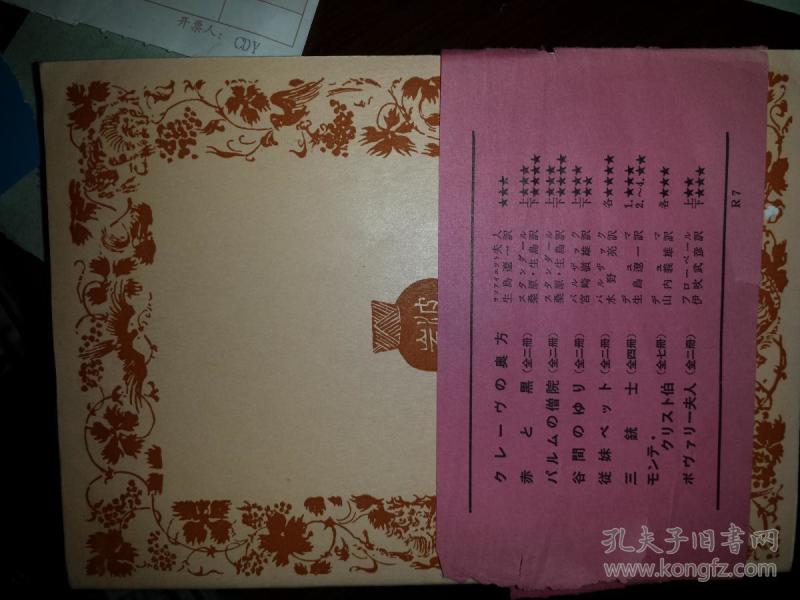 开票人：
CDY
岩波
クレーヴの奥方
ラファイエット夫人
生島遼一訳
★★★
赤と黒（全二冊）
スタンダール
桑原・生島訳
上★★★★
下★★★★★
パルムの僧院（全二冊）
スタンダール
桑原・生島訳
谷間のゆり（全二冊）
バルザック
宮崎嶺雄訳
従妹ベット（全二冊）
バルザック
水野亮訳
各★★★★
三銃士（全四冊）
デュマ
生島遼一訳
1.★★★
2.～4.★★
モンテ・クリスト伯（全七冊）
デュマ
山内義雄訳
各★★★
ボヴァリー夫人（全二冊）
フローベール
伊吹武彦訳
R7
孔夫子旧书网
www.kongfz.com